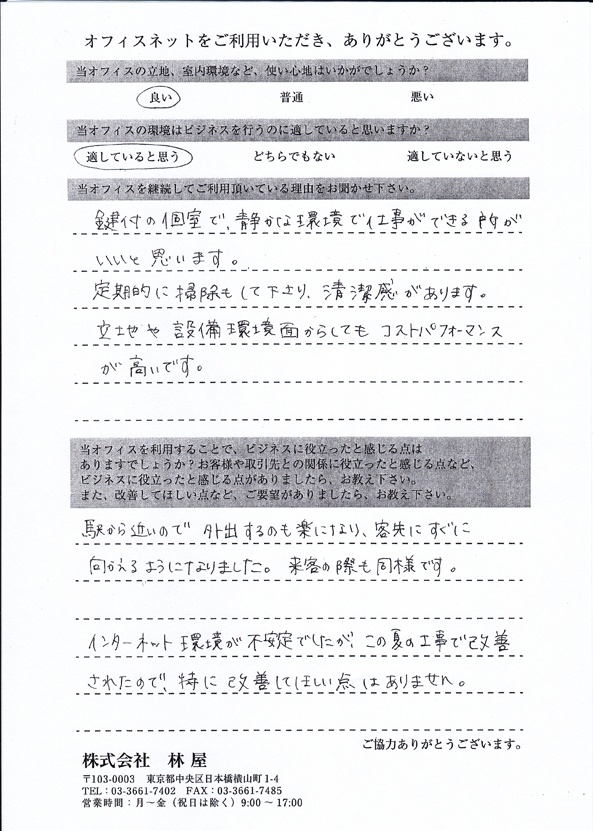 オフィスネットをご利用いただき、ありがとうございます。
当オフィスの立地、室内環境など、使い心地はいかがでしょうか？
良い 普通 悪い
当オフィスの環境はビジネスを行うのに適していると思いますか？
適していると思う どちらでもない 適していないと思う
当オフィスを継続してご利用頂いている理由をお聞かせ下さい。
鍵付の個室で、静かな環境で仕事ができる所が
いいと思います。
定期的に掃除もして下さり、清潔感があります。
立地や設備環境面からしてもコストパフォーマンス
が高いです。
当オフィスを利用することで、ビジネスに役立ったと感じる点は
ありますでしょうか？お客様や取引先との関係に役立ったと感じる点など、
ビジネスに役立ったと感じる点がありましたら、お教え下さい。
また、改善してほしい点など、ご要望がありましたら、お教え下さい。
駅から近いので外出するのも楽になり、客先にすぐに
向かえるようになりました。来客の際も同様です。
インターネット環境が不安定でしたが、この夏の工事で改善
されたので、特に改善してほしい点はありません。
ご協力ありがとうございます。
株式会社 林屋
〒103-0003 東京都中央区日本橋横山町1-4
TEL：03-3661-7402 FAX：03-3661-7485
営業時間：月～金（祝日は除く）9:00～17:00